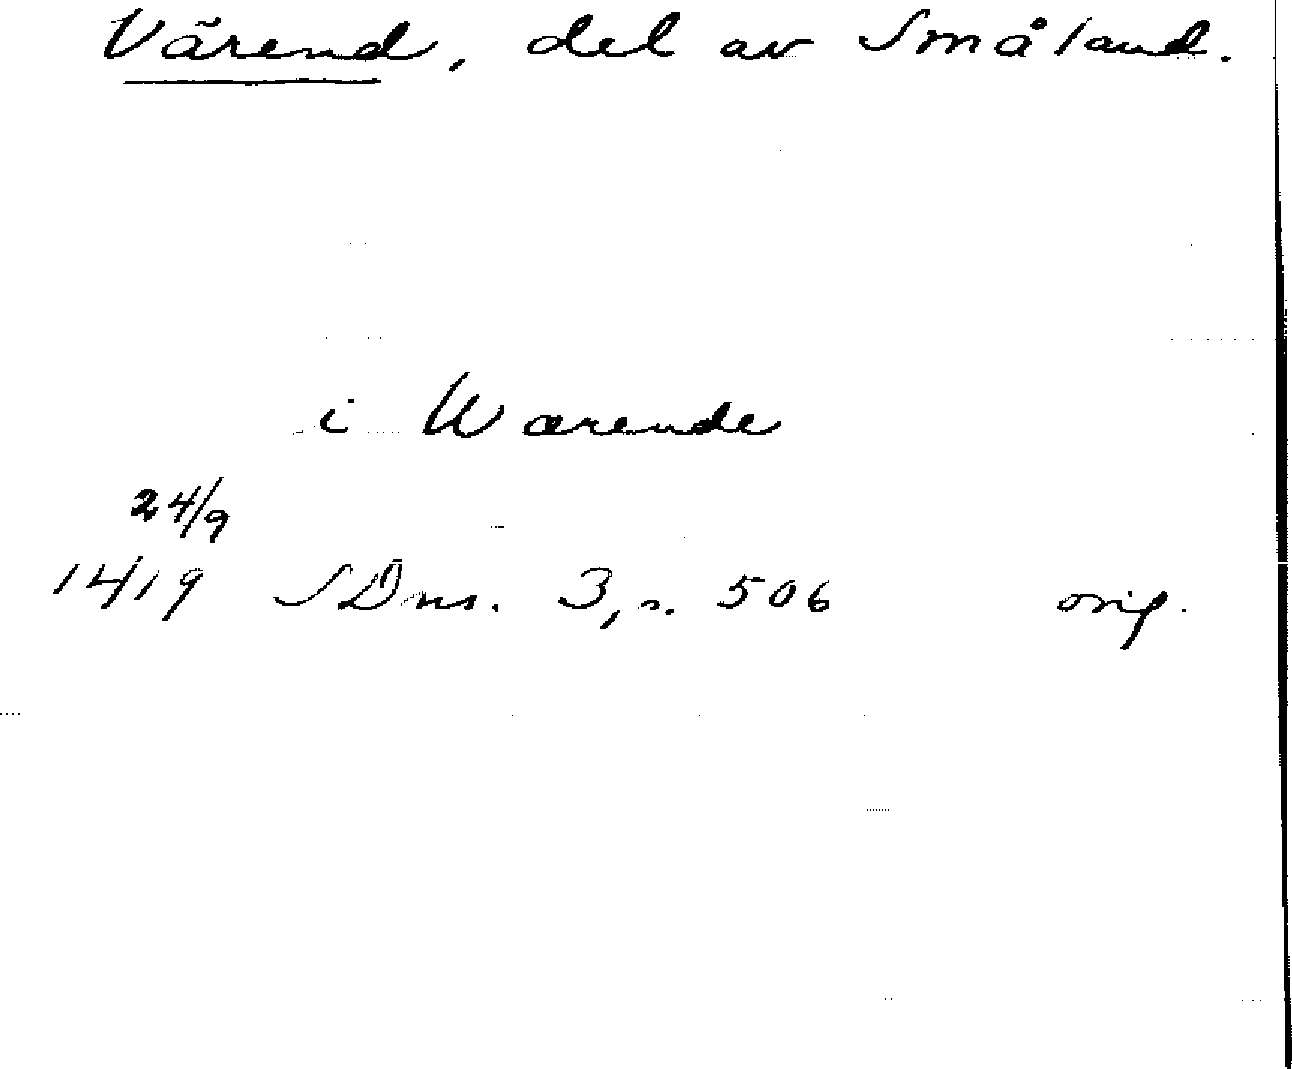 Värend, del av Småland.
i Wærende
24/9
1419 SDns. 3, s. 506 orig.